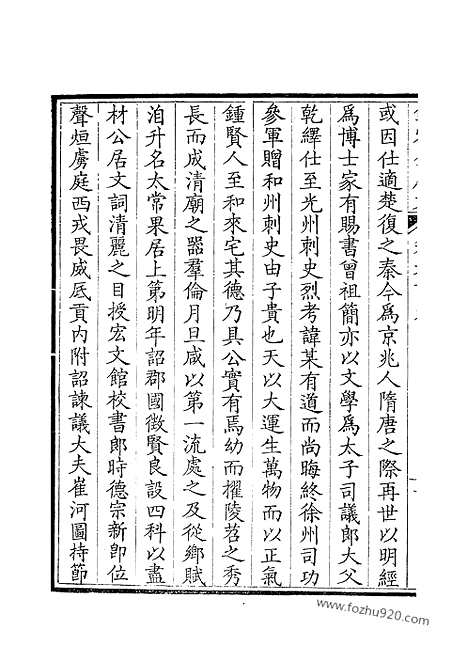 或因仕適楚復之秦今爲京兆人隋唐之際再世以明經
爲博士家有賜書曾祖簡亦以文學爲太子司議郎大父
乾繹仕至光州刺史烈考諱某有道而尚晦終徐州司功
參軍贈和州刺史由子貴也天以大運生萬物而以正氣
鍾賢人至和來宅其德乃具公實有焉幼而擢陵苕之秀
長而成清廟之器羣倫月旦咸以第一流處之及從鄉賦
洎升名太常果居上第明年詔郡國徵賢良設四科以盡
材公居文詞清麗之目授宏文館校書郎時德宗新卽位
聲烜虜庭西戎畏威厎貢內附詔諫議大夫崔河圖持節
www.fozhu920.com